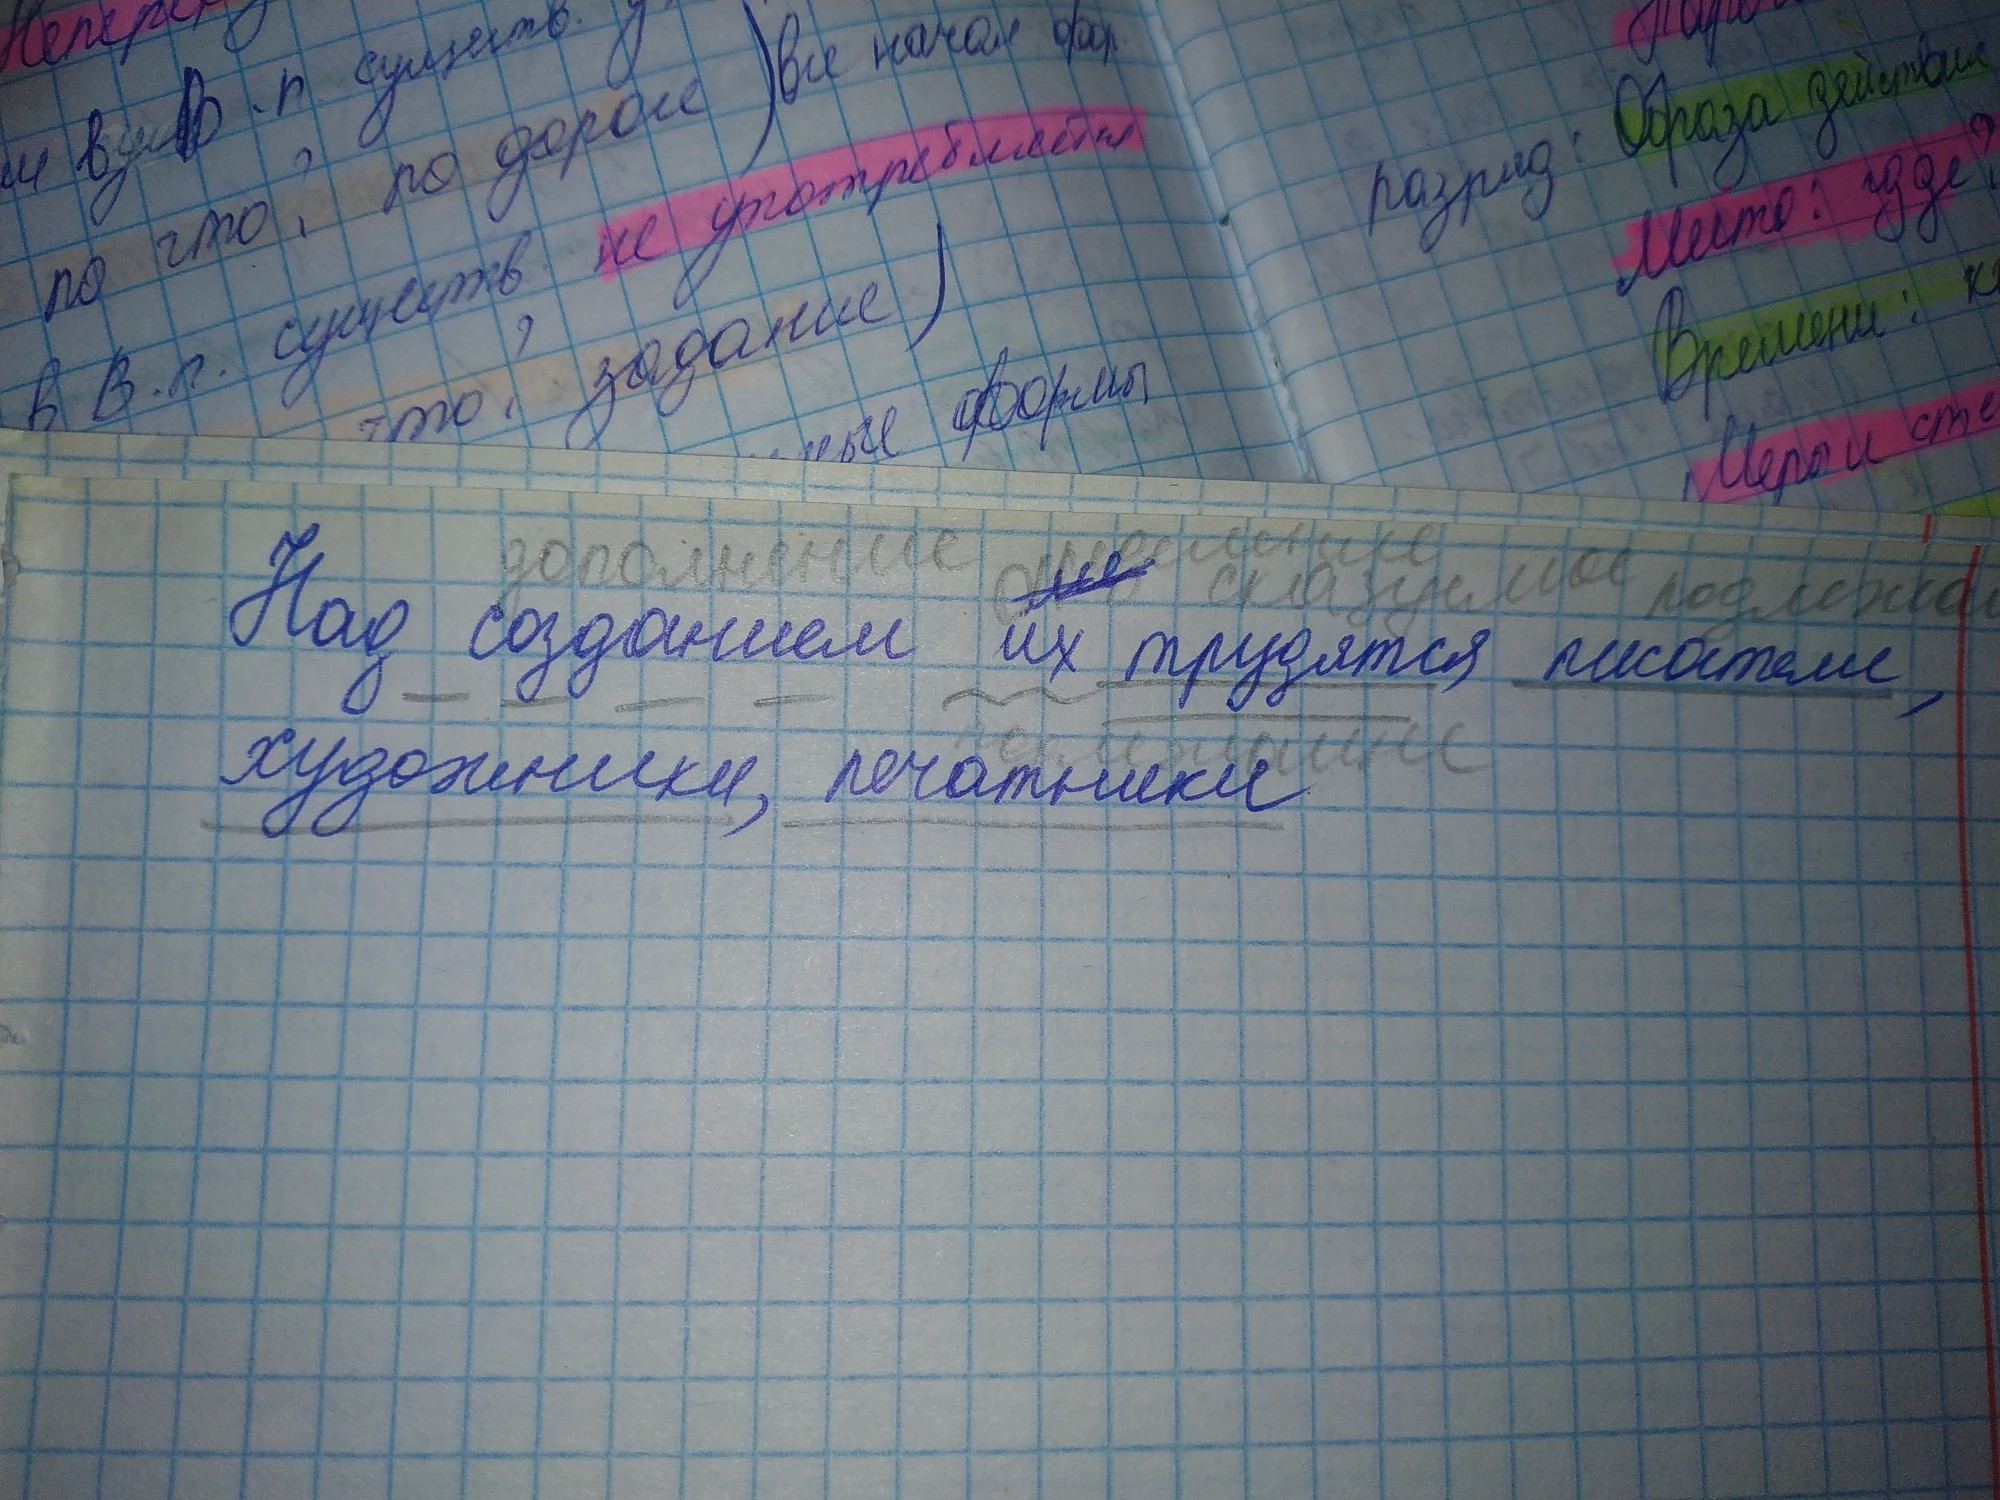 в В.п. существ.
по что?, по дороге) все начал фор.
в В.п. существ. не употребляется
что?, задание)
формы
разряд: Образа действия
Место: где?
Времени:
Меры и сте
дополнение сказуемое подлежащ
Над созданием их трудятся писатели,
художники, печатники